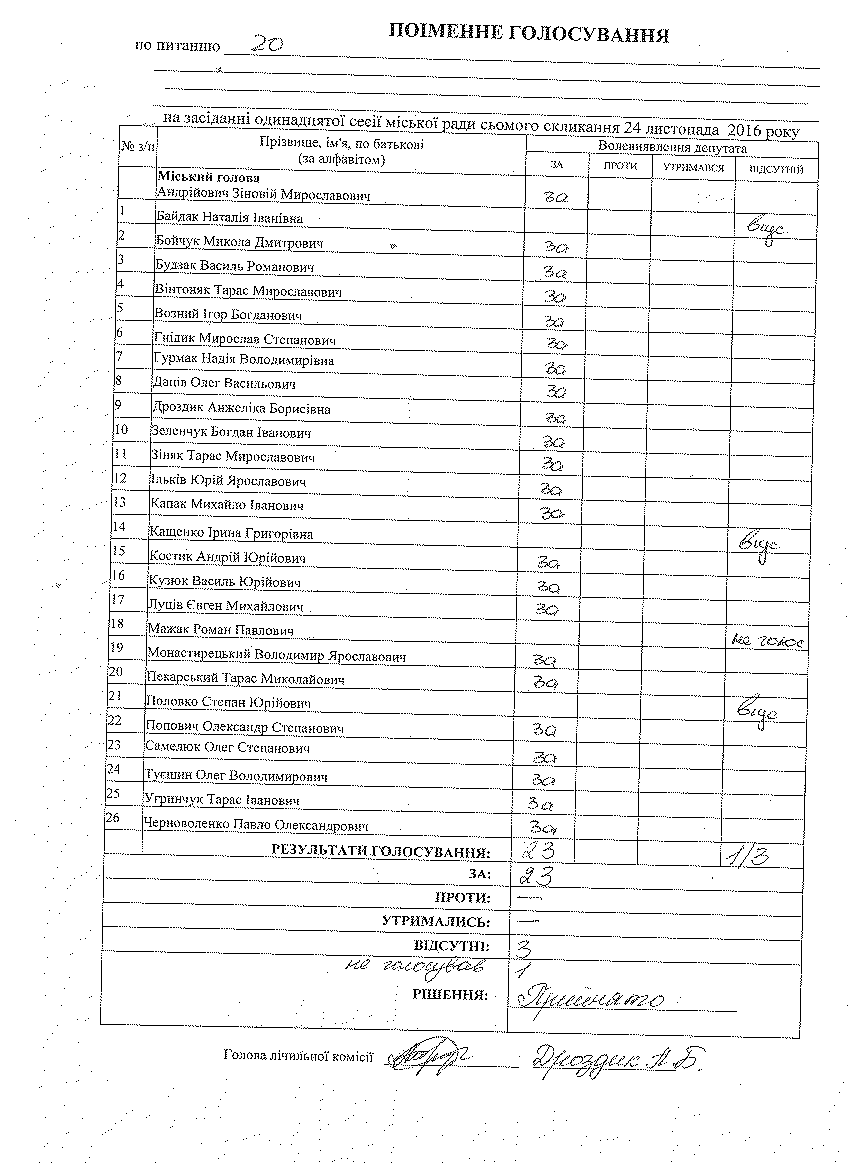 ПОІМЕННЕ ГОЛОСУВАННЯ
по питанню 20
на засіданні одинадцятої сесії міської ради сьомого скликання 24 листопада 2016 року
№ з/п Прізвище, ім'я, по батькові (за алфавітом) Волевиявлення депутата
ЗА ПРОТИ УТРИМАВСЯ ВІДСУТНІЙ
Міський голова
Андрійович Зіновій Мирославович за
1 Байдак Наталія Іванівна відс.
2 Бойчук Микола Дмитрович за
3 Будзак Василь Романович за
4 Вінтоняк Тарас Мирославович за
5 Возний Ігор Богданович за
6 Гнідик Мирослав Степанович за
7 Гурмак Надія Володимирівна за
8 Даців Олег Васильович за
9 Дроздик Анжеліка Борисівна за
10 Зеленчук Богдан Іванович за
11 Зіняк Тарас Мирославович за
12 Ільків Юрій Ярославович за
13 Капак Михайло Іванович за
14 Кащенко Ірина Григорівна відс.
15 Костик Андрій Юрійович за
16 Кузюк Василь Юрійович за
17 Луців Євген Михайлович за
18 Мажак Роман Павлович не голос
19 Монастирецький Володимир Ярославович за
20 Пекарський Тарас Миколайович за
21 Половко Степан Юрійович відс
22 Попович Олександр Степанович за
23 Самелюк Олег Степанович за
24 Туєшин Олег Володимирович за
25 Угринчук Тарас Іванович за
26 Черноволенко Павло Олександрович за
РЕЗУЛЬТАТИ ГОЛОСУВАННЯ: 23 1/3
ЗА: 23
ПРОТИ: —
УТРИМАЛИСЬ: —
ВІДСУТНІ: 3
не голосував 1
РІШЕННЯ: Прийнято
Голова лічильної комісії Дроздик А.Б.